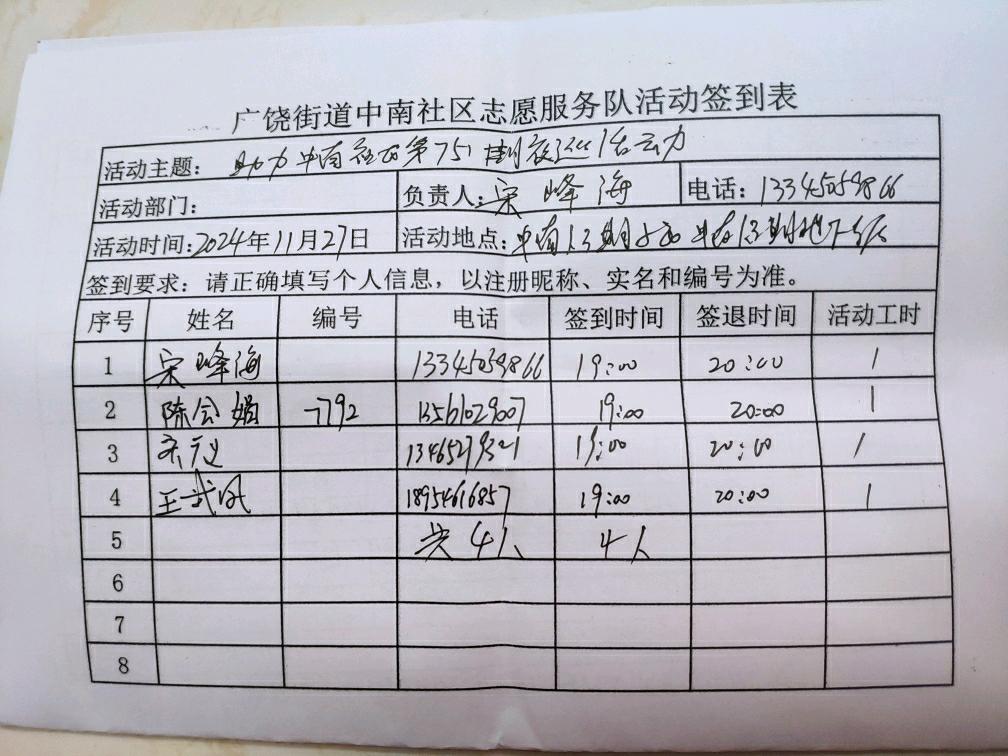 广饶街道中南社区志愿服务队活动签到表
活动主题: 助力中南社区第751期夜巡活动
活动部门: 负责人: 宋峰海 电话: 13345059866
活动时间: 2024年11月27日 活动地点: 中南
签到要求: 请正确填写个人信息，以注册昵称、实名和编号为准。
序号 姓名 编号 电话 签到时间 签退时间 活动工时
1 宋峰海 13345059866 19:00 20:00 1
2 陈会娟 7792 13561029007 19:00 20:00 1
3 13465279321 19:00 20:00 1
4 王武凤 18954616857 19:00 20:00 1
5 共4人 4人
6
7
8